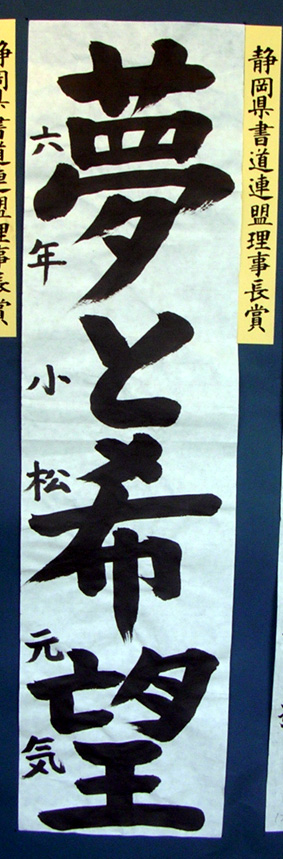 静岡県書道連盟理事長賞
夢と希望
六年 小松元気
静岡県書道連盟理事長賞